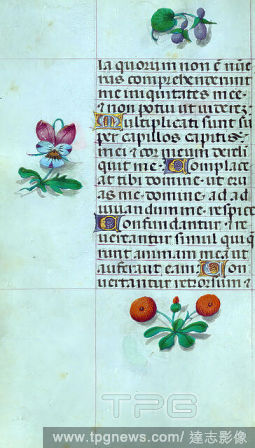 la quorum non e nūe
rus comprehenderunt
me iniquitates mee·
⁊ non potui ut uiderē·
Multiplicati sunt su
per capillos capitis
mei ⁊ cor meum dereli
quit me· Complace
at tibi domine ut eru
as me· domine ad ad
iuuandum me respice
Confundantur ⁊ re
uereantur simul qui q̄
runt animam meam ut
auferant eam· Con
uertantur retrorsum ⁊
TPG
www.tpgnews.com / 達志影像